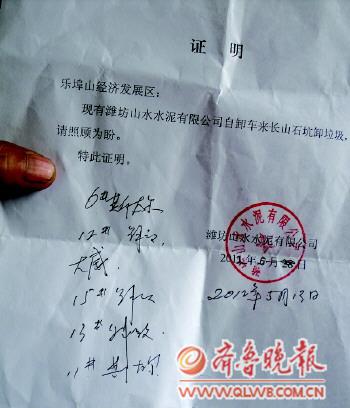 证明
乐埠山经济发展区：
现有潍坊山水水泥有限公司自卸车来长山石坑卸垃圾，
请照顾为盼。
特此证明。
6#斯太尔
12#
大威
15#
13#
11#
山水水泥有限公司
潍坊山水水泥有限公司
2012年5月13日
齐鲁晚报
WWW.QLWB.COM.CN